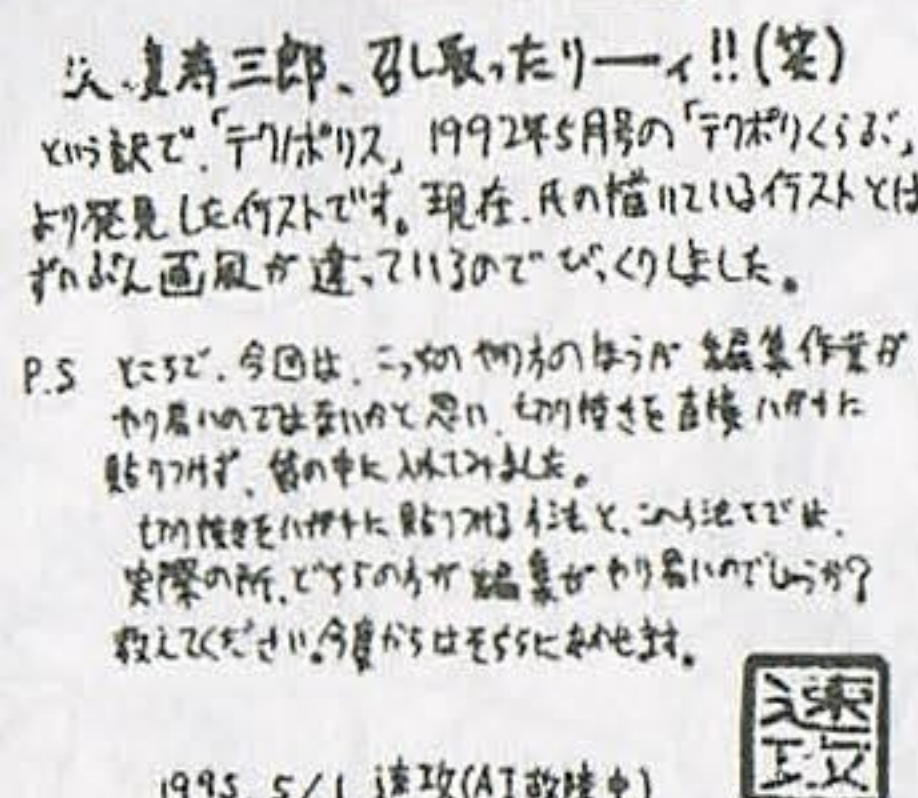 寿三郎、召し取ったりーィ!!(笑)
という訳で、「テクノポリス」1992年5月号の「テクポリくらぶ」
より発見したイラストです。現在、氏の描いているイラストとは
ずいぶん画風が違っているのでびっくりしました。
P.S ところで、今回は、こっちのやり方のほうが編集作業が
やり易いのではないかと思い、切り抜きを直接ハガキに
貼りつけず、袋の中に入れてみました。
切り抜きをハガキに貼りつける方法と、この方法とでは、
実際の所、どちらの方が編集がやり易いのでしょうか?
教えてください。今度からはそちらにあわせます。
速攻
1995. 5/1 速攻(AI故障中)